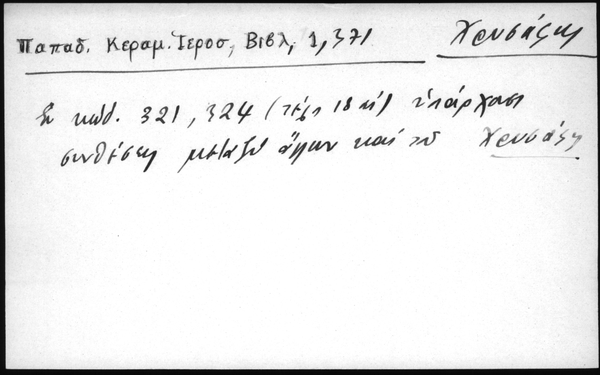 Παπαδ. Κεραμ. Ἱεροσ, Βιβλ, 1,371 Χρυσάφης
Ἐν κώδ. 321, 324 (τέλη 18 αἰ) ὑπάρχουσι
συνθέσεις μεταξὺ ἄλλων καὶ τοῦ Χρυσάφη